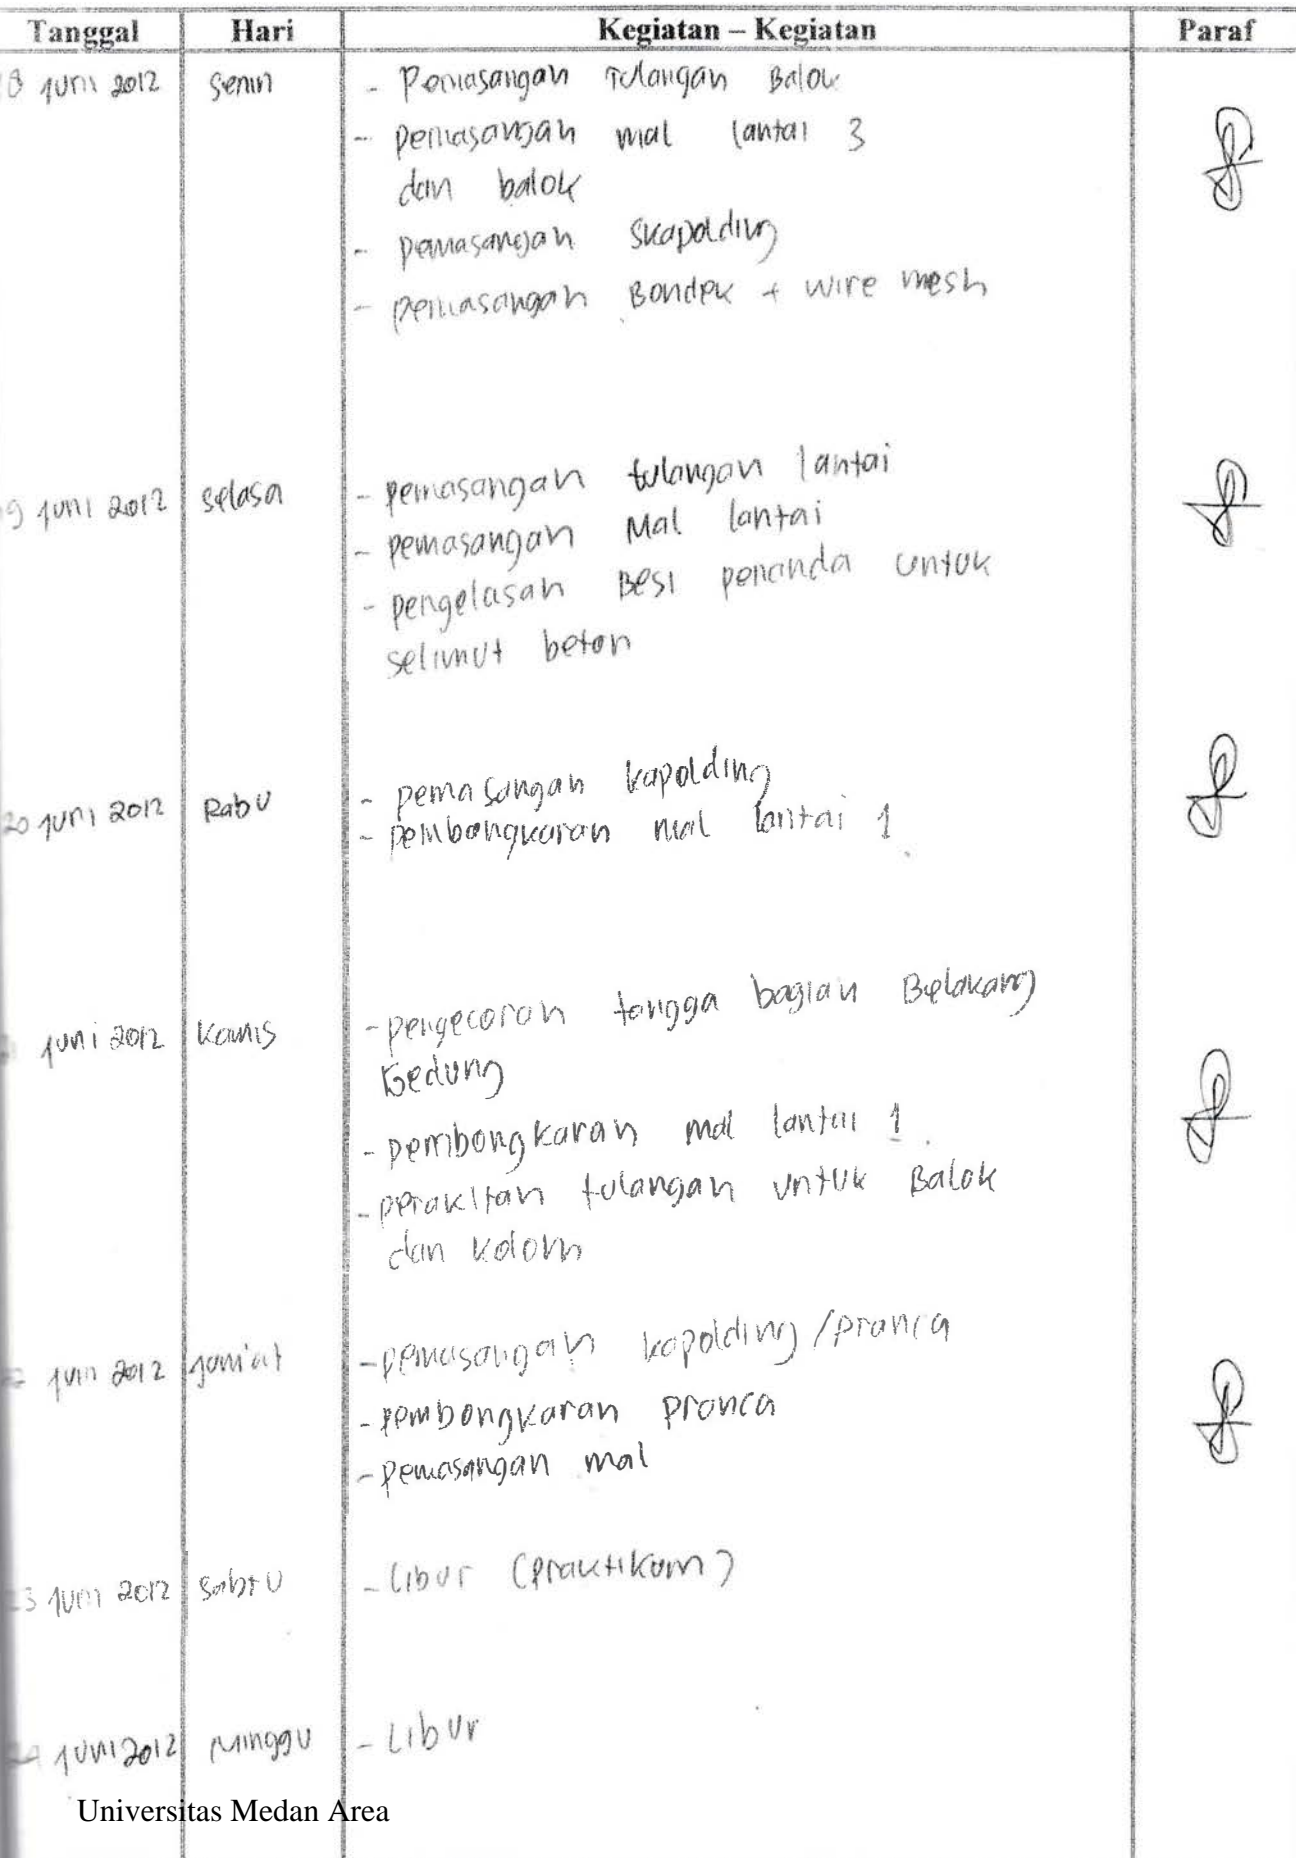 Tanggal Hari Kegiatan – Kegiatan Paraf
8 Juni 2012 Senin - Pemasangan Tulangan Balok
- pemasangan mal lantai 3
dan balok
- pemasangan skapolding
- pemasangan Bondek + wire mesh
9 Juni 2012 Selasa - pemasangan tulangan lantai
- pemasangan Mal lantai
- pengelasan Besi penanda untuk
selimut beton
20 Juni 2012 Rabu - pemasangan kapolding
- pembongkaran mal lantai 1
Juni 2012 Kamis - pengecoran tangga bagian Belakang
Gedung
- pembongkaran mal lantai 1
- perakitan tulangan untuk Balok
dan kolom
Juni 2012 Jum'at - pemasangan kapolding / pranca
- pembongkaran pranca
- pemasangan mal
23 Juni 2012 Sabtu - Libur (praktikum)
24 Juni 2012 Minggu - Libur
Universitas Medan Area